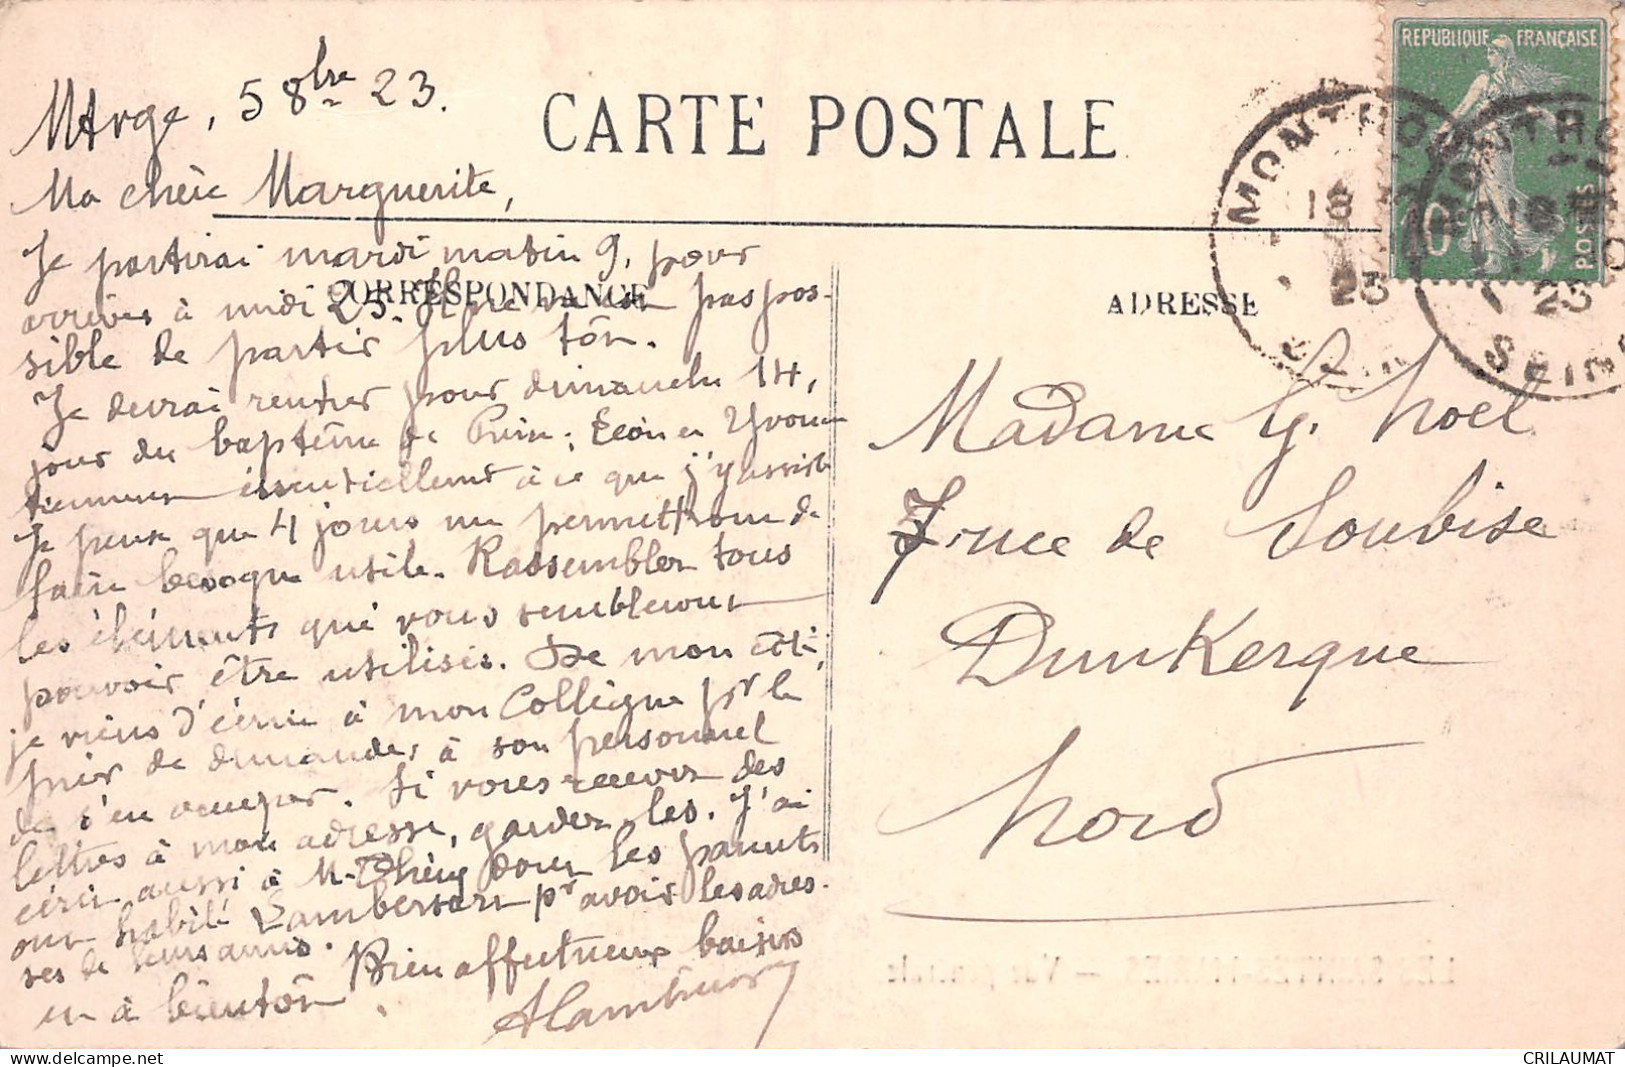 CARTE POSTALE
CORRESPONDANCE
ADRESSE
REPUBLIQUE FRANÇAISE
POSTES
MONTRO
18
23
SEINE
23
Mtrge, 5 8bre 23.
Ma chère Marguerite,
Je partirai mardi matin 9, pour
arriver à midi 25. Il ne m'est pas pos-
sible de partir plus tôt.
Je devrai rentrer pour dimanche 14,
jour du baptême de Léon et Yvonne
tiennent essentiellement à ce que j'y assiste
Je pense que 4 jours me permettront de
faire besogne utile. Rassembler tous
les éléments qui vous sembleront
pouvoir être utilisés. De mon côté,
je viens d'écrire à mon Collègue pr le
prier de demander à son personnel
de s'en occuper. Si vous recevez des
lettres à mon adresse, gardez-les. J'ai
écrit aussi à M. Théry dont les parents
ont habité Lambersart pr avoir les adres-
ses de leurs amis.
Bien affectueux baisers
et à bientôt.
Madame G. Noël
7 rue de Soubise
Dunkerque
Nord
CRILAUMAT